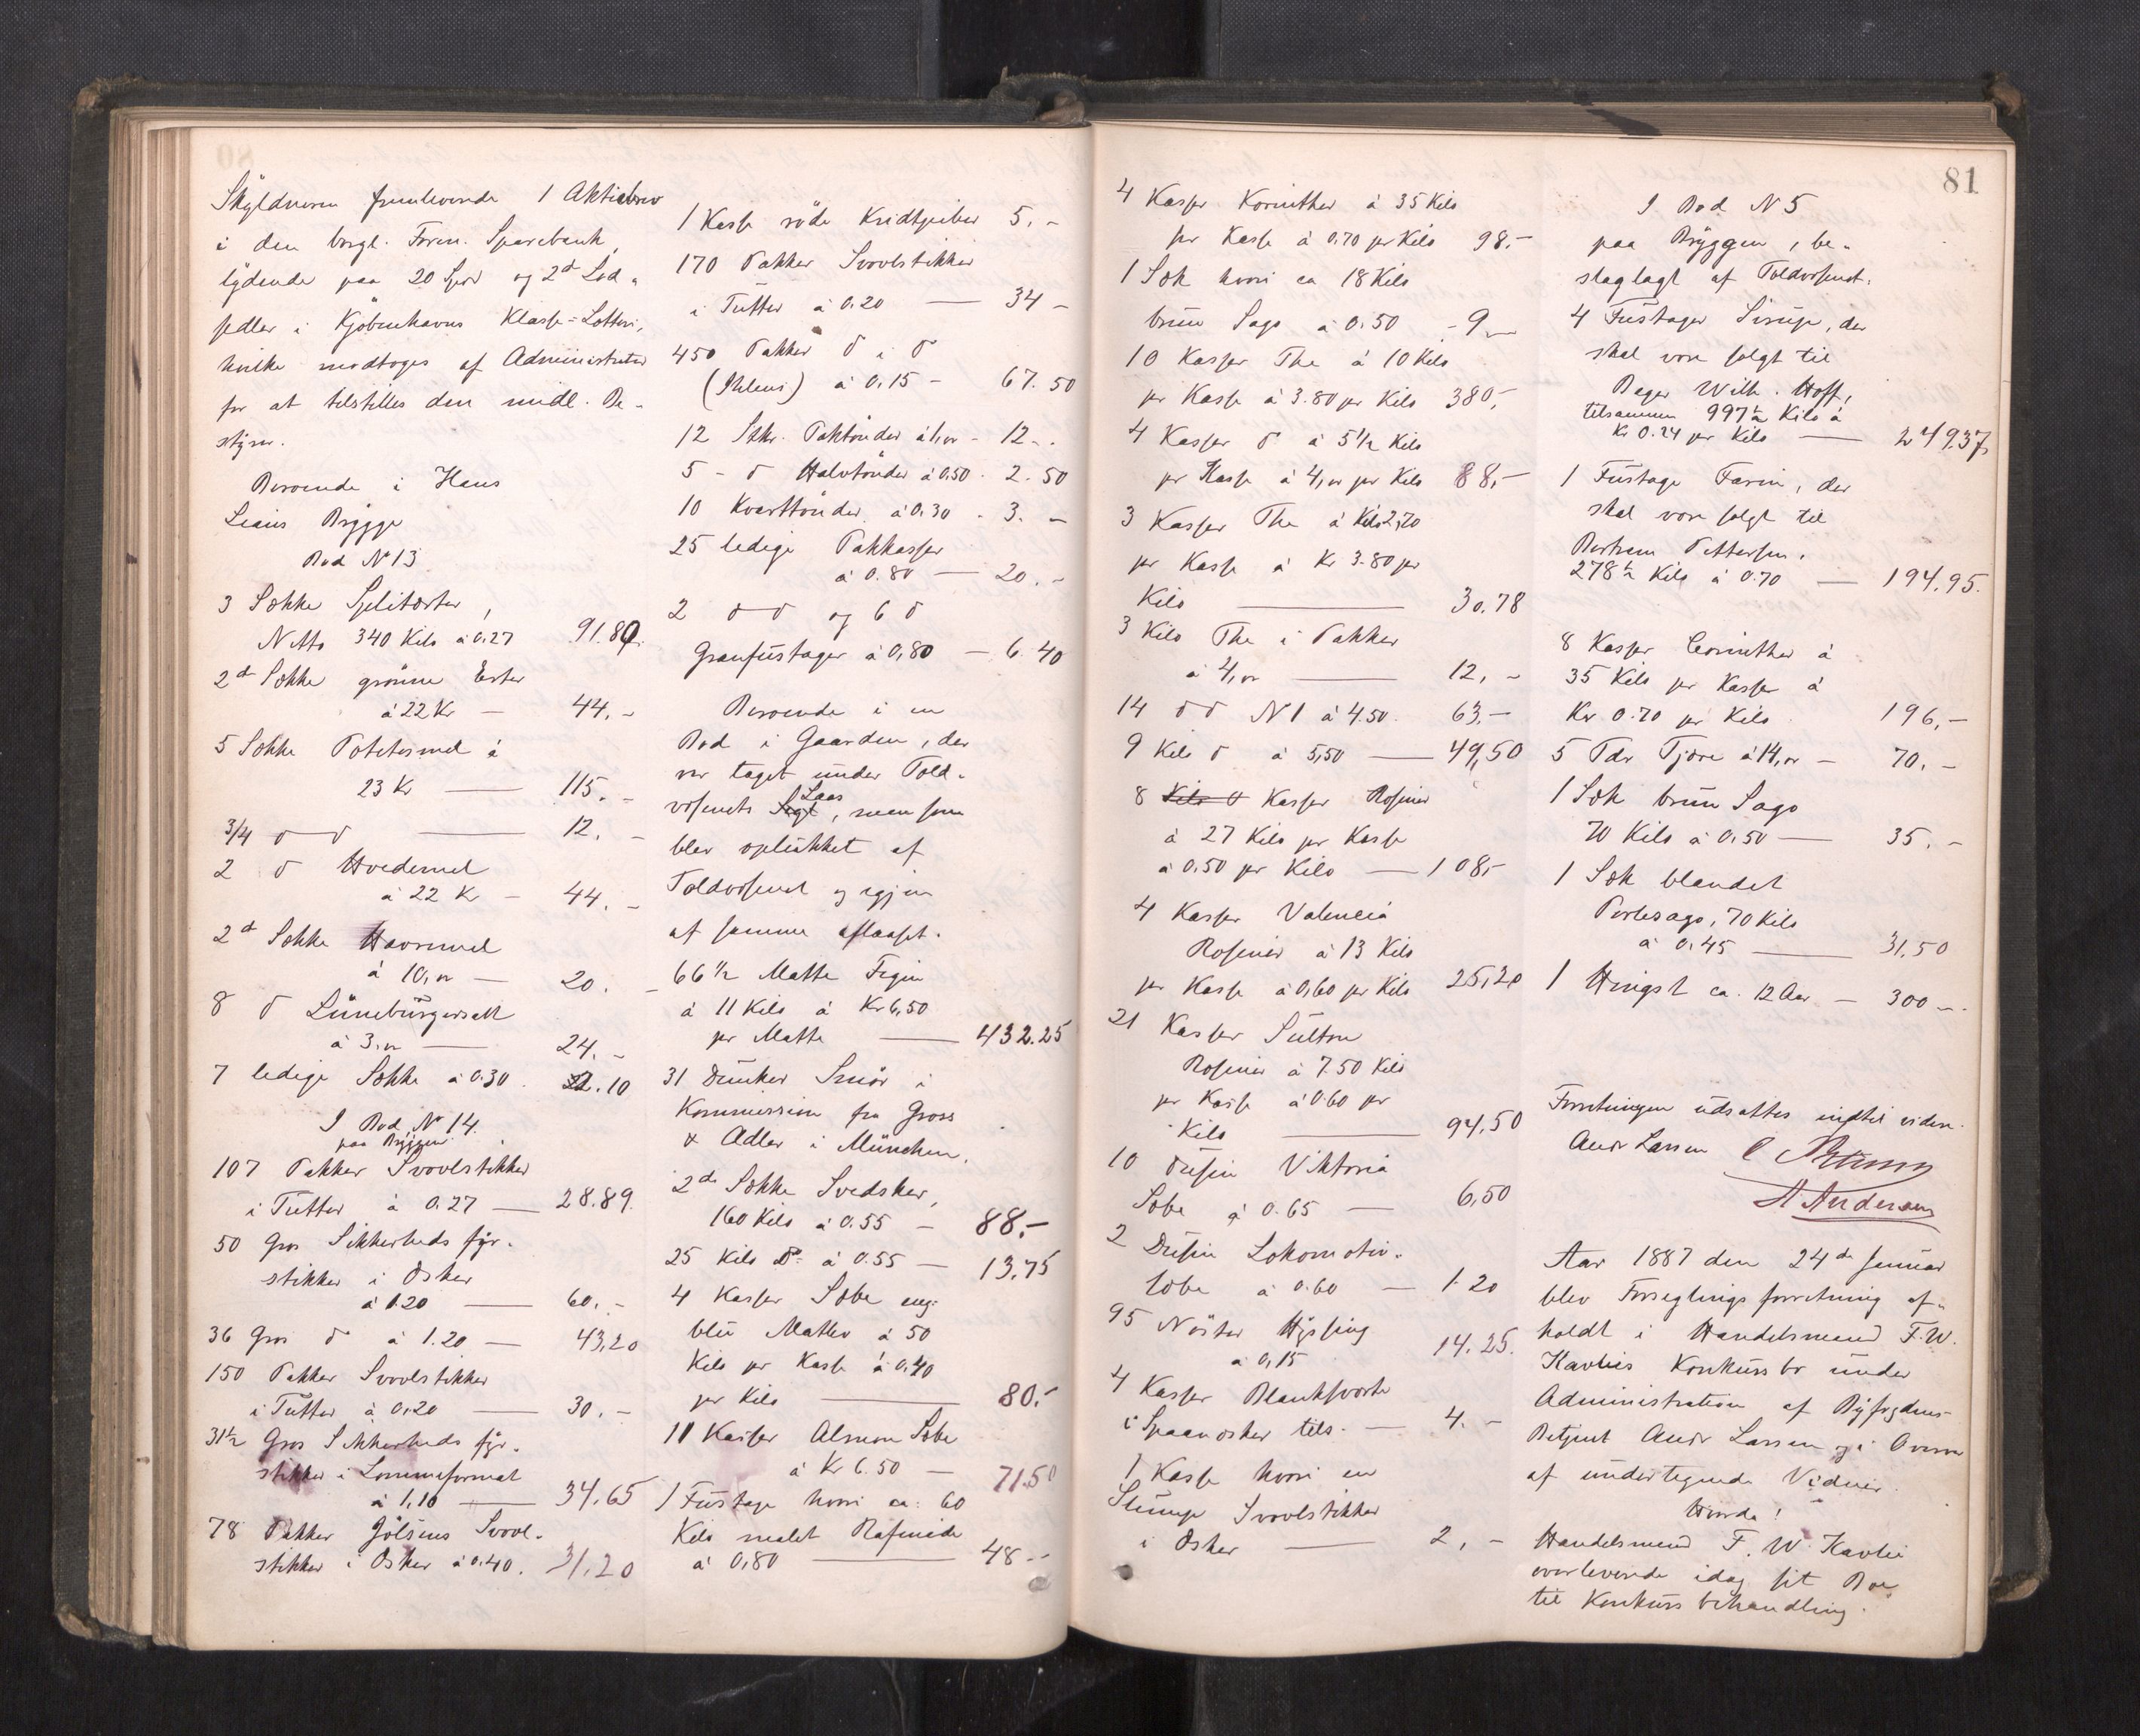 80
Skyldneren fremleverede 1 Aktiebrev
i den borgl. Foren. Sparebank,
lydende paa 20 Spd og 2de Lod-
sedler i Kjöbenhavns Klasse-Lotteri,
hvilke modtoges af Administrator
for at tilstilles den midl. Be-
styrer.
Beroende i Hans
Brygge
Bod N 13
3 Sække Splitærter,
Netto 340 Kilo à 0.27 91.80
2de Sække grönne Erter
à 22 Kr — 44,-
5 Sække Potetesmel à
23 Kr — 115.-
3/4 d d — 12.-
2 d Hvedemel
à 22 Kr — 44.-
2de Sække Havremel
à 10,00 — 20.-
8 d Lüneburgersalt
à 3.00 — 24.-
7 ledige Sække à 0.30 2.10
I Bod N 14.
paa Bryggen
107 Pakker Svovlstikker
i Tutter à 0.27 — 28.89.
50 Gros Sikkerheds fyr-
stikker i Æsker
à 1.20 — 60.-
36 Gros d à 1.20 — 43,20
150 Pakker Svovlstikker
i Tutter à 0,20 — 30.-
31½ Gros Sikkerheds fyr-
stikker i Lommeformat
à 1,10 — 34.65
78 Pakker Jölsens Svovl-
stikker i Æsker à 0.40. 31,20
1 Kasse röde Kridtpiber 5.-
170 Pakker Svovlstikker
i Tutter à 0.20 — 34 -
450 Pakker d i d
à 0.15 - 67.50
12 Stkr. Taktönder à 1,00 - 12-.
5 - d Halvtönder à 0,50 - 2.50
10 Kvarttönder à 0.30 - 3.-
25 ledige Pakkasser
à 0.80 — 20.-
2 d d og 6 d
Granfustager à 0,80 — 6.40
Beroende i en
Bod i Gaarden, der
var taget under Told-
væsenets Segl Laas, men som
blev oplukket af
Toldvæsenet og igjen
af samme aflaaset.
66½ Matte Figen
à 11 Kilo à Kr 6,50
pr Matte — 432.25
31 Dunker Smör i
Kommission fra Gross
& Adler i München.
2de Sække Svedsker,
160 Kilo à 0.55 — 88.-
25 Kilo Do à 0.55 — 13,75
4 Kasser Sæbe eng:
blü Matter à 50
Kilo pr Kasse à 0,40
pr Kilo — 80.-
11 Kasser Almen Sæbe
à Kr 6.50 — 71.50
1 Fustage hvori ca: 60
Kilo malet Rafinade
à 0,80 — 48.-
81
4 Kasser Korinther à 35 Kilo
pr Kasse à 0.70 pr Kilo 98.-
1 Sæk hvori ca 18 Kilo
brun Sago à 0.50 - 9.-
10 Kasser The à 10 Kilo
pr Kasse à 3.80 pr Kilo 380,-
4 Kasser d à 5½ Kilo
pr Kasse à 4,00 pr Kilo 88,-
3 Kasser The à Kilo 2,70
pr Kasse à Kr 3.80 pr
Kilo — 30.78
3 Kilo The i Pakker
à 4,00 — 12,-
14 d d N 1 à 4.50. 63,-
9 Kilo d à 5,50 — 49,50
8 Kilo d Kasser Rosiner
à 27 Kilo pr Kasse
à 0.50 pr Kilo — 108,-
4 Kasser Valencia
Rosiner à 13 Kilo
pr Kasse à 0,60 pr Kilo 25,20
21 Kasser Sultan
Rosiner à 7.50 Kilo
pr Kasse à 0.60 pr
Kilo — 94,50
10 Dusin Viktoria
Sæbe à 0.65 — 6,50
2 Dusin Lokomotiv-
sæbe à 0.60 — 1.20
95 Nöster Hyssing
à 0,15 14.25.
4 Kasser Blanksværte
i Spaanæsker tils. — 4.-
1 Kasse hvori en
Slump Svovlstikker
i Æsker — 2,-
I Bod N 5
paa Bryggen, be-
slaglagt af Toldvæsenet.
4 Fustager Sirup, der
skal være solgt til
Bager Wilh. Hoff,
tilsammen 997½ Kilo à
Kr 0.24 pr Kilo — 249.37
1 Fustage Farin, der
skal være solgt til
Bertram Pettersen.
278½ Kilo à 0.70 — 194.95.
8 Kasser Corinther à
35 Kilo pr Kasse à
Kr 0.70 pr Kilo 196,-
5 Tdr Tjære à 14,00 — 70.-
1 Sæk brun Sago
70 Kilo à 0.50 — 35.-
1 Sæk blandet
Perlesago, 70 Kilo
à 0.45 — 31,50
1 Hingst ca. 12 Aar — 300-.
Forretningen udsattes indtil videre.
Andr Larsen
A Andersen
Aar 1887 den 24de Januar
blev Forseglingsforretning af-
holdt i Handelsmand F. W.
Kavlis Konkursbo under
Administration af Byfogdens
Betjent Andr Larsen og i Overvær
af undertegnede Vidner.
Hvorda!
Handelsmand F. W. Kavli
overleverede idag sit Boe
til Konkursbehandling.